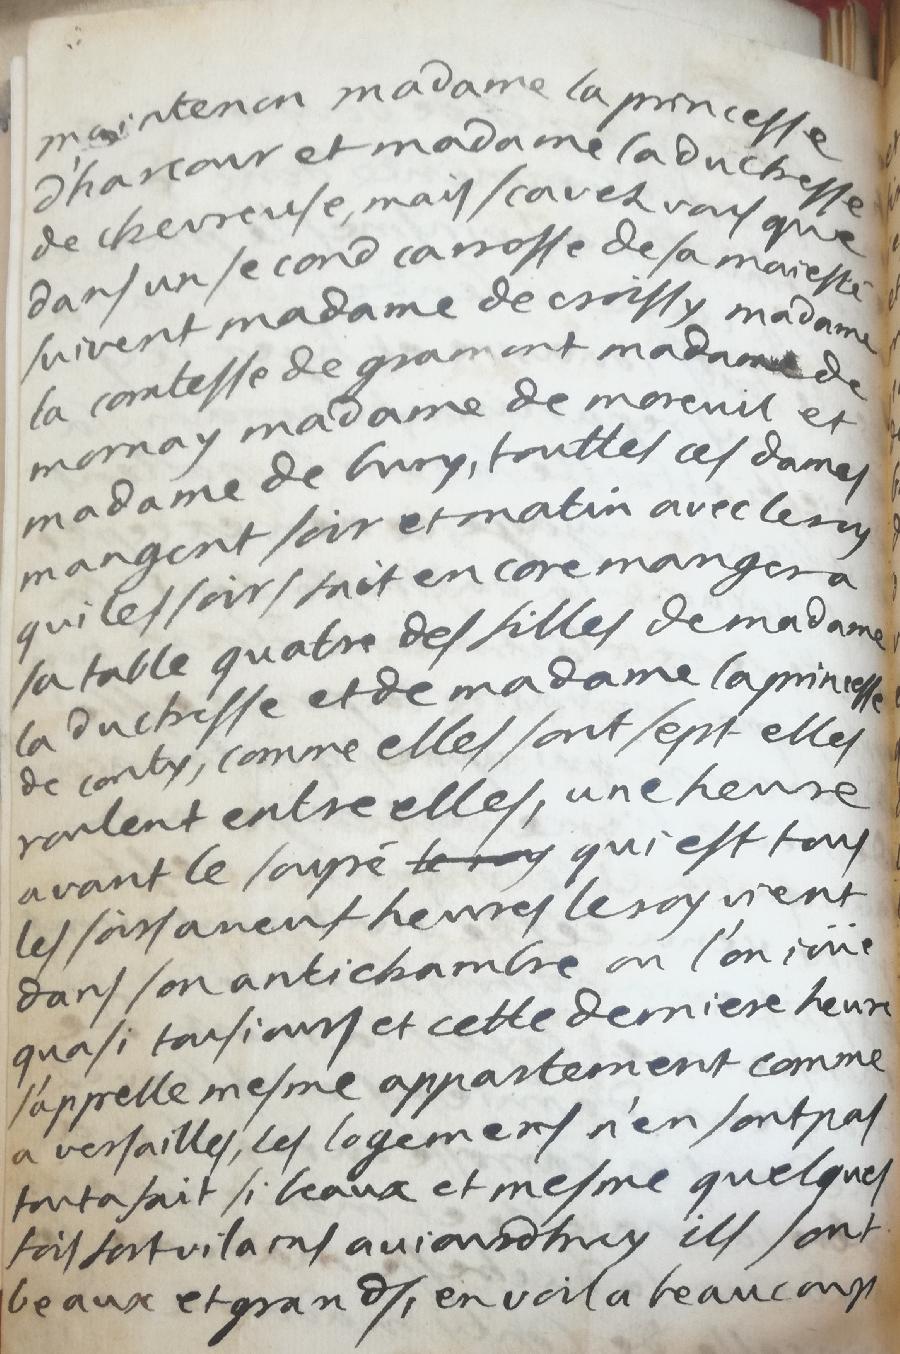 maintenon madame la princesse
d'harcour et madame la duchesse
de chevreuse, mais scavez vous que
dans un second carrosse de sa maiesté
suivent madame de croissy madame
la comtesse de gramont madame de
mornay madame de moreuil et
madame de bury, touttes ces dames
mangent soir et matin avec le roy
qui les soirs fait encore manger a
sa table quatre des filles de madame
la duchesse et de madame la princesse
de conty, comme elles sont sept elles
roulent entre elles, une heure
avant le soupé le roy qui est tous
les soirs a neuf heures le roy vient
dans son antichambre ou l'on ioüe
quasi tousiours et cette derniere heure
s'apprelle mesme appartement comme
a versailles, les logemens n'en sont pas
tout a fait si beaux et mesme quelques
fois fort vilains auiourdhuy ils sont
beaux et grands, en voila beaucoup